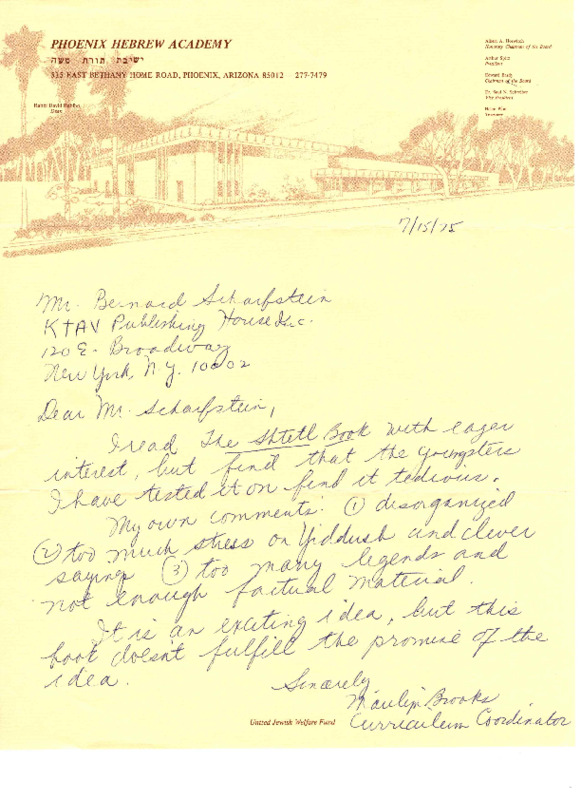 PHOENIX HEBREW ACADEMY
ישיבת תורת משה
335 EAST BETHANY HOME ROAD, PHOENIX, ARIZONA 85012 277-7479
Rabbi David
Dean
Honorary Chairman of the Board
Arthur
President
Chairman of the Board
Vice President
Treasurer
7/15/75
Mr. Bernard Scharfstein
KTAV Publishing House Inc.
120 E. Broadway
New York, N.Y. 10002
Dear Mr. Scharfstein,
I read The Shtetl Book with eager
interest, but find that the youngsters
I have tested it on find it tedious.
My own comments: ① disorganized
② too much stress on Yiddush and clever
sayings ③ too many legends and
not enough factual material.
It is an exciting idea, but this
book doesn't fulfill the promise of the
idea.
Sincerely
Brooks
Curriculum Coordinator
United Jewish Welfare Fund